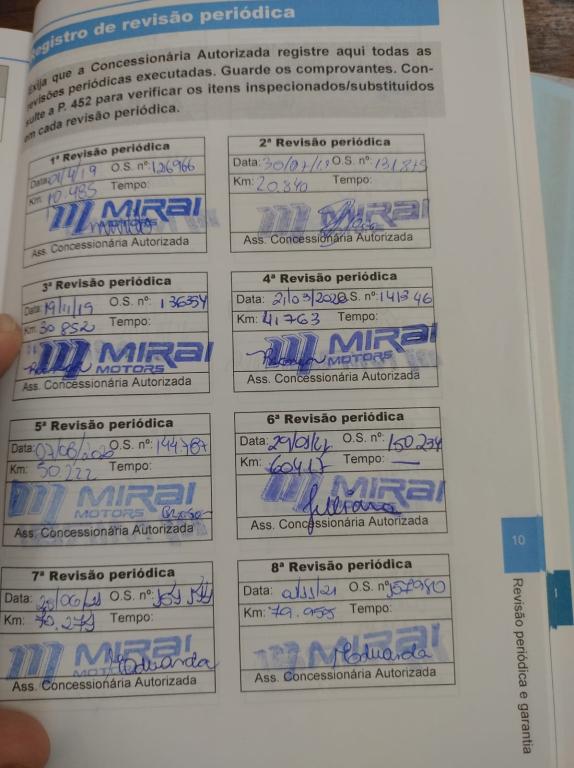 Registro de revisão periódica
Exija que a Concessionária Autorizada registre aqui todas as
revisões periódicas executadas. Guarde os comprovantes. Con-
sulte a P. 452 para verificar os itens inspecionados/substituídos
em cada revisão periódica.
1ª Revisão periódica
Data: 01/4/19 O.S. nº: 126966
Km: 10.485 Tempo:
MIRAI
MOTORS
Ass. Concessionária Autorizada
2ª Revisão periódica
Data: 30/07/19 O.S. nº: 131.875
Km: 20.840 Tempo:
MIRAI
Ass. Concessionária Autorizada
3ª Revisão periódica
Data: 19/11/19 O.S. nº: 136354
Km: 30 852 Tempo:
MIRAI
MOTORS
Ass. Concessionária Autorizada
4ª Revisão periódica
Data: 21/03/2020 O.S. nº: 141346
Km: 41.763 Tempo:
MIRAI
MOTORS
Ass. Concessionária Autorizada
5ª Revisão periódica
Data: 07/08/2020 O.S. nº: 144.787
Km: 50.222 Tempo:
MIRAI
MOTORS
Ass. Concessionária Autorizada
6ª Revisão periódica
Data: 29/01/21 O.S. nº: 150.234
Km: 60417 Tempo: —
MIRAI
Juliana
Ass. Concessionária Autorizada
7ª Revisão periódica
Data: O.S. nº:
Km: 70.279 Tempo:
MIRAI
Eduarda
Ass. Concessionária Autorizada
8ª Revisão periódica
Data: O.S. nº: 157980
Km: 79.955 Tempo:
MIRAI
Eduarda
Ass. Concessionária Autorizada
10
Revisão periódica e garantia